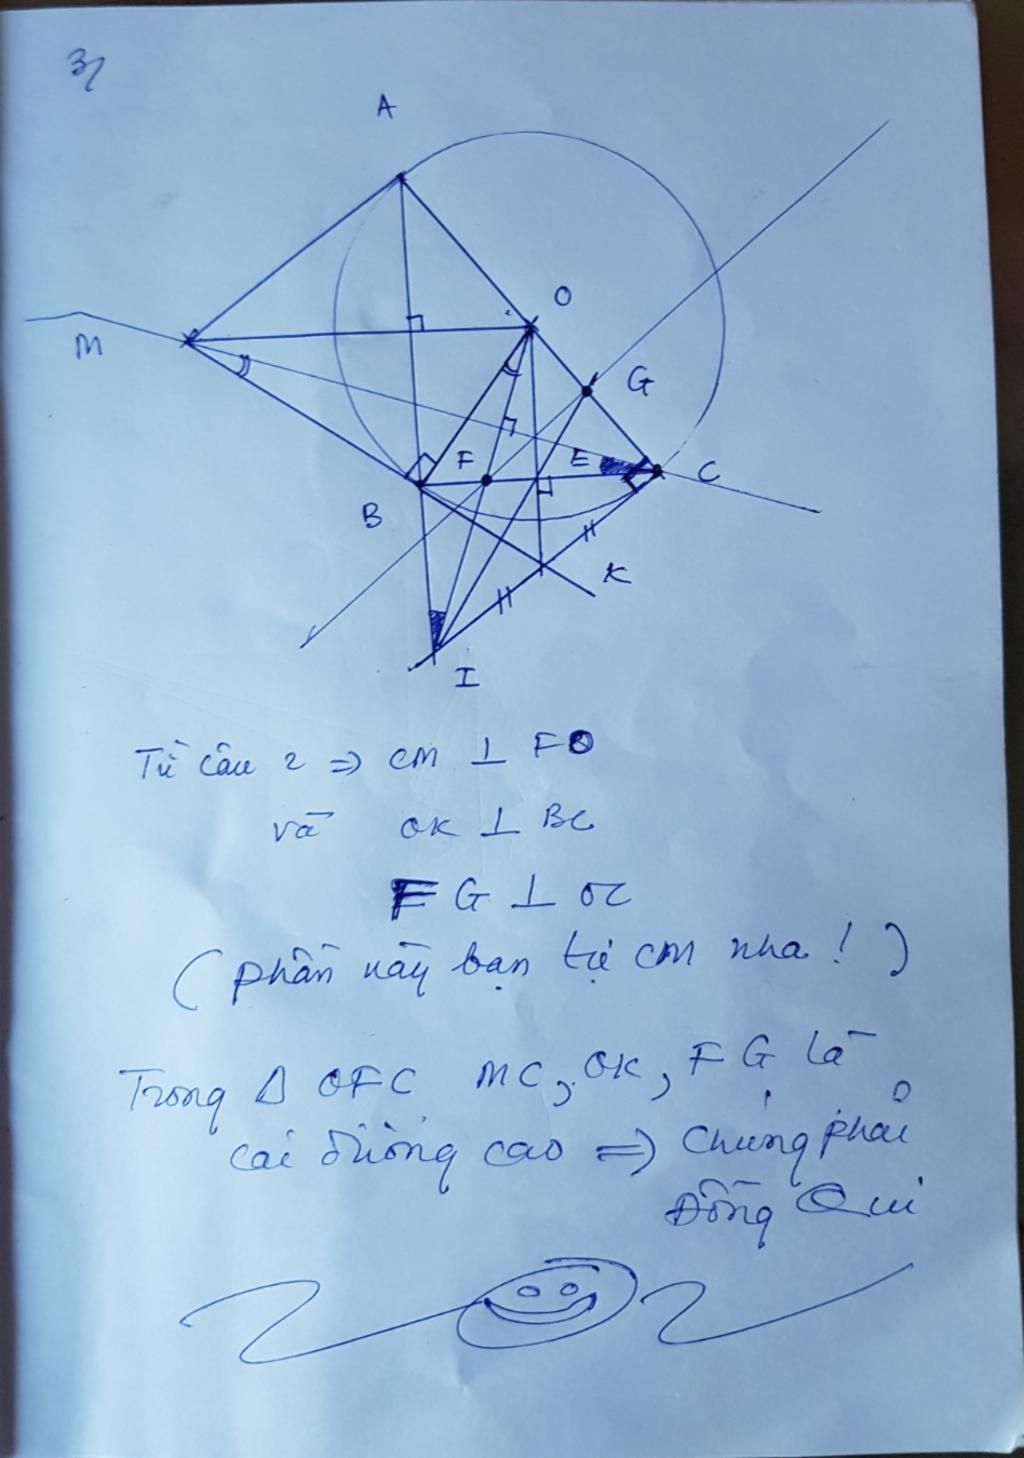 3/
A
O
M
G
F
E
C
B
K
I
Từ câu 2 => CM ⊥ FO
và OK ⊥ BC
FG ⊥ OC
(phần này bạn tự cm nha!)
Trong Δ OFC MC, OK, FG là
cái đường cao => chúng phải
Đồng Qui